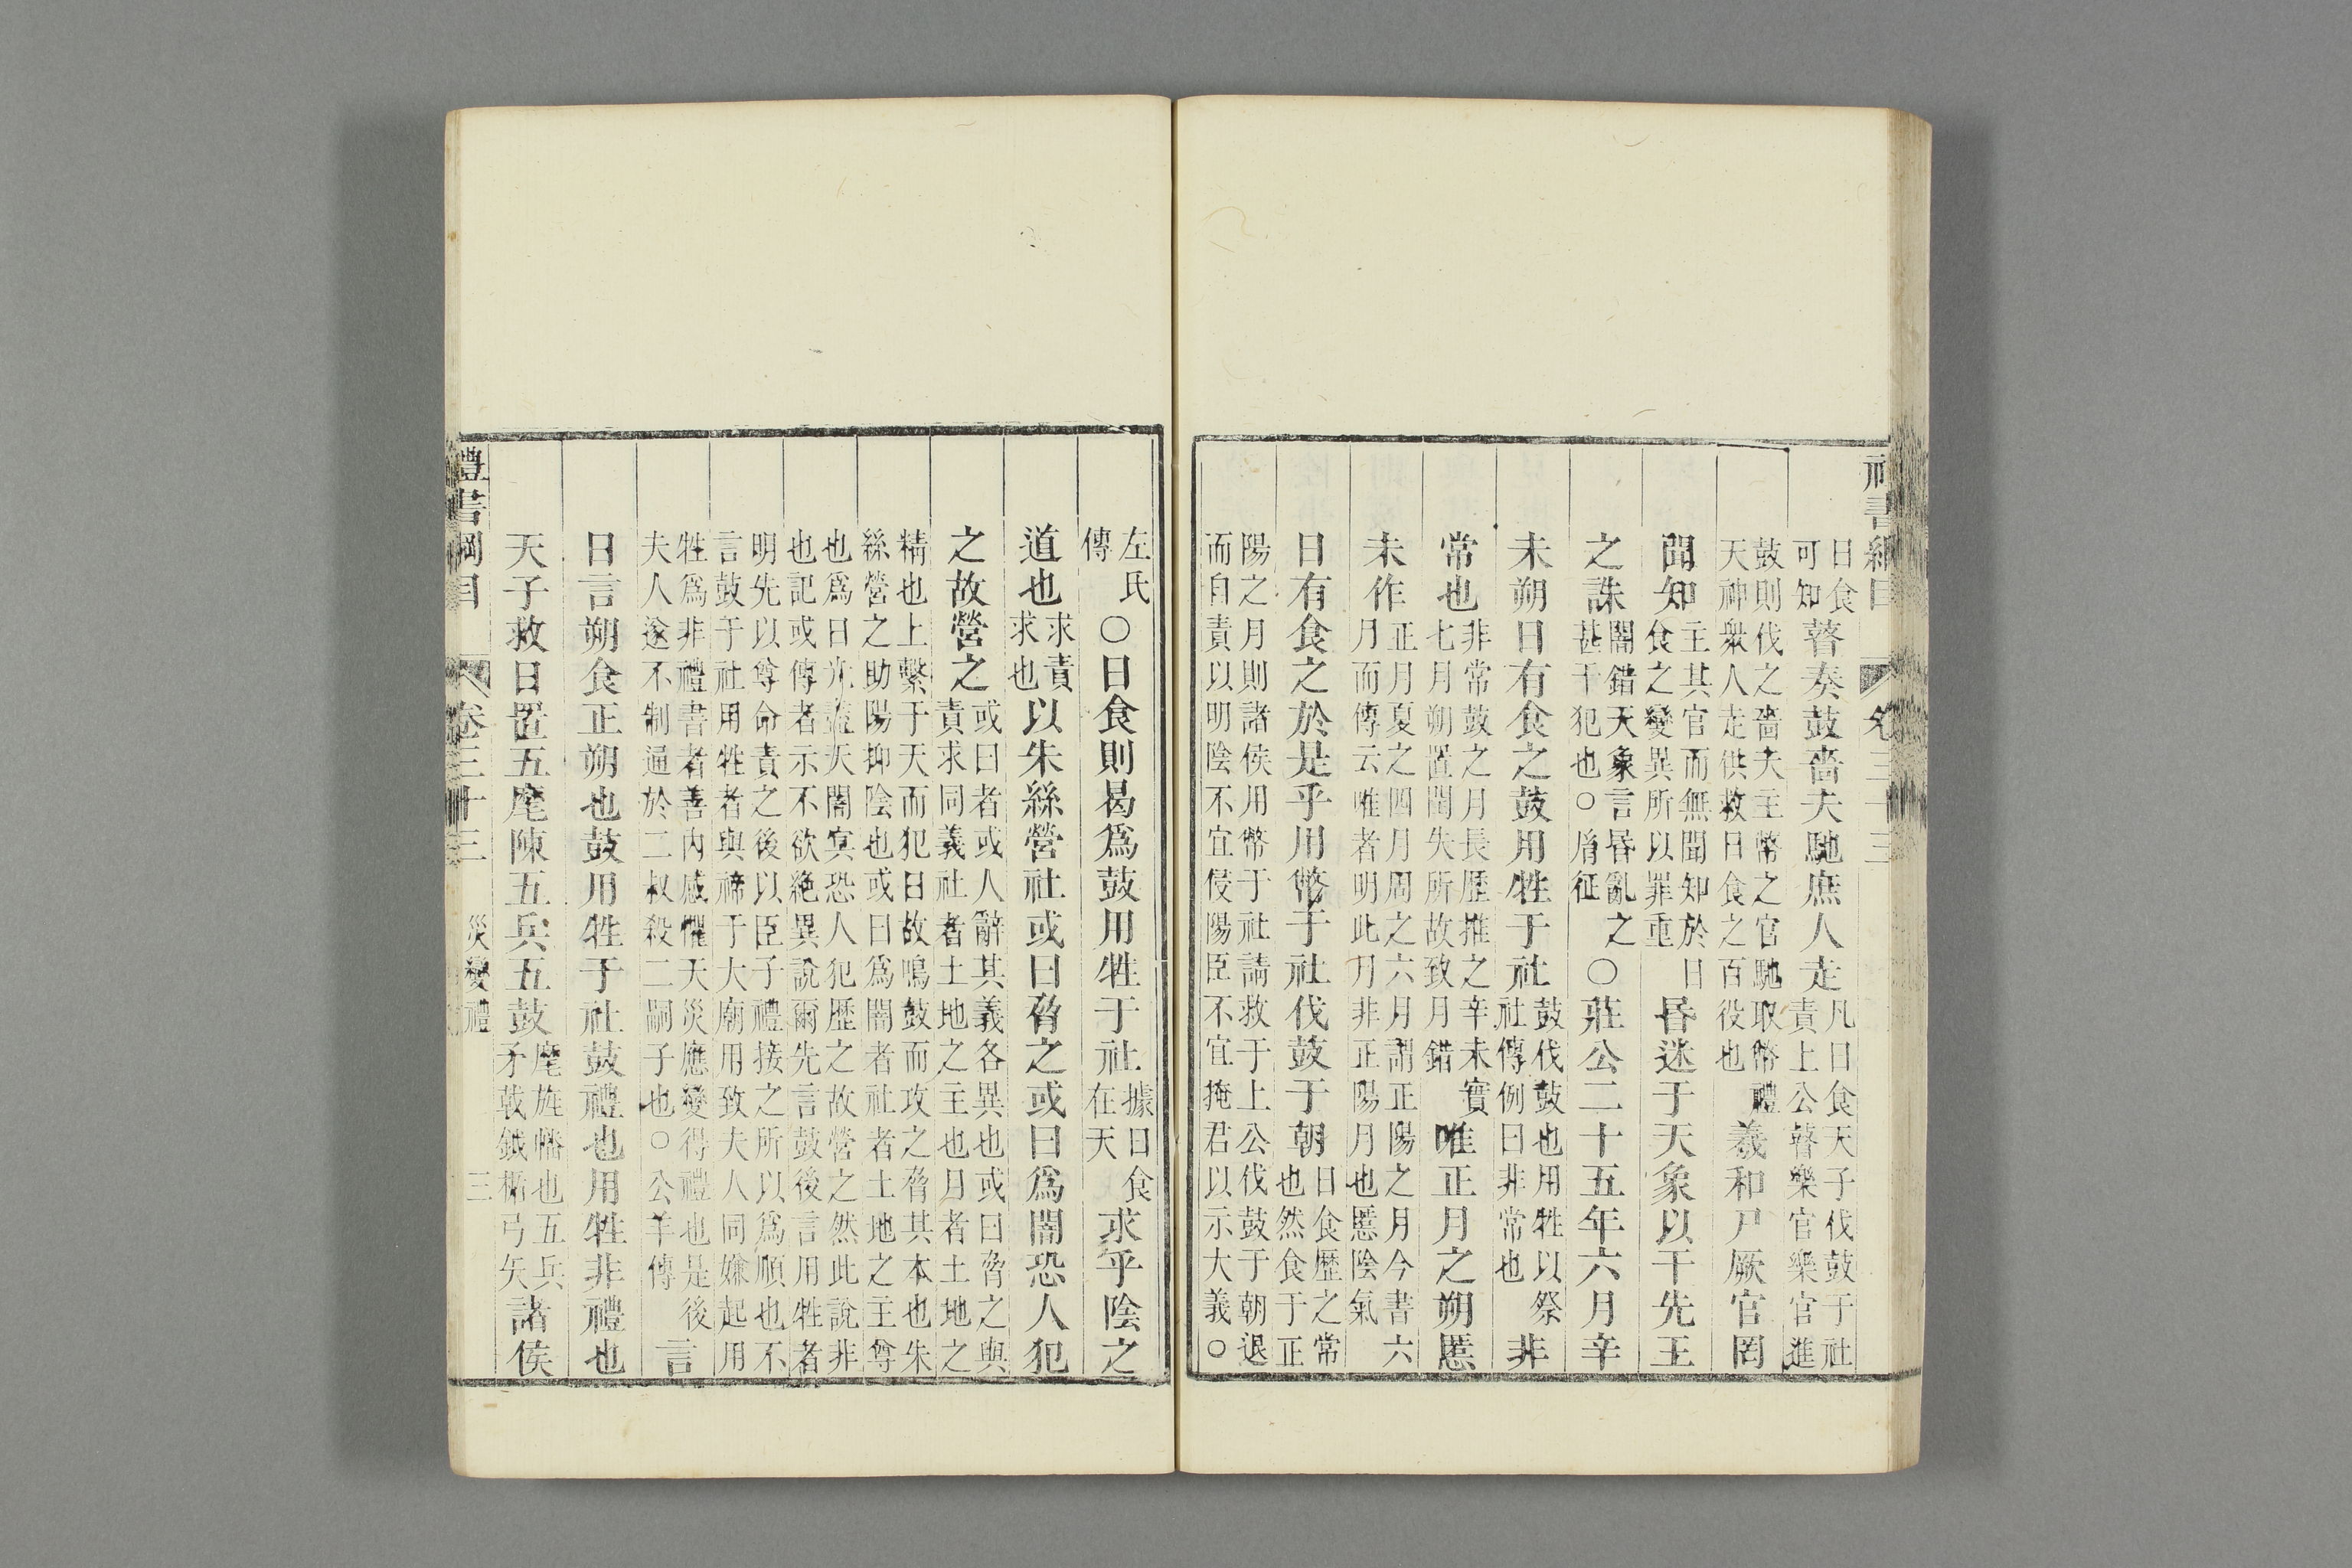 禮書綱目 卷三十三
日食可知瞽奏鼓嗇夫馳庶人走凡日食天子伐鼓于社責上公瞽樂官樂官進
鼓則伐之嗇夫主幣之官馳取幣禮天神衆人走供救日食之百役也羲和尸厥官罔
聞知主其官而無聞知於日食之變異所以罪重昏迷于天象以干先王
之誅闇錯天象言昏亂之甚干犯也○胤征○莊公二十五年六月辛
未朔日有食之鼓用牲于社鼓伐鼓也用牲以祭社傳例曰非常也非
常也非常鼓之月長歷推之辛未實七月朔置閏失所故致月錯唯正月之朔慝
未作正月夏之四月周之六月謂正陽之月今書六月而傳云唯者明此月非正陽月也慝陰氣
日有食之於是乎用幣于社伐鼓于朝日食歷之常也然食于正
陽之月則諸侯用幣于社請救于上公伐鼓于朝退而自責以明陰不宜侵陽臣不宜掩君以示大義○
左氏傳○日食則曷爲鼓用牲于社據日食在天求乎陰之
道也求責求也以朱絲營社或曰脅之或曰爲闇恐人犯
之故營之或曰者或人辭其義各異也或曰脅之與責求同義社者土地之主也月者土地之
精也上繫于天而犯日故鳴鼓而攻之脅其本也朱絲營之助陽抑陰也或曰爲闇者社者土地之主尊
也爲日光盡天闇冥恐人犯歷之故營之然此說非也記或傳者示不欲絶異說爾先言鼓後言用牲者
明先以尊命責之後以臣子禮接之所以爲順也不言鼓于社用牲者與禘于大廟用致夫人同嫌起用
牲爲非禮書者善內感懼天災應變得禮也是後夫人遂不制通於二叔殺二嗣子也○公羊傳言
日言朔食正朔也鼓用牲于社鼓禮也用牲非禮也
天子救日置五麾陳五兵五鼓麾旌幡也五兵矛戟鉞楯弓矢諸侯
禮書綱目 卷三十三 災變禮 三